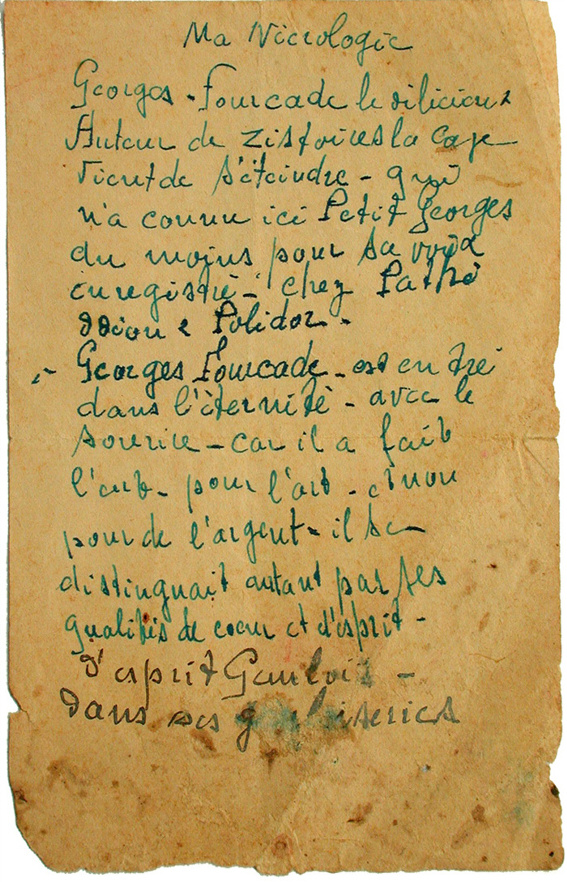 Ma Nicrologie
Georges - Fourcade le dilicieux
Auteur de Zistoires la case
vient de s'éteindre - qui
n'a connu ici Petit Georges
du moins pour sa voix
enregistré - chez Pathé
Odéon & Polidor -
Georges Fourcade - est entré
dans l'éternité - avec le
sourire - car il a fait
l'art - pour l'art - et non
pour de l'argent - il se
distinguait autant par ses
qualités de coeur et d'esprit -
d'esprit Gaulois -
dans ses